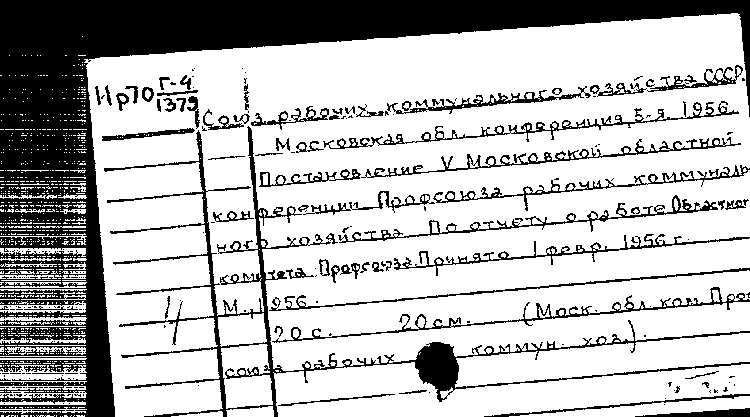 Ир70 Г-4
1379
Союз рабочих коммунального хозяйства СССР.
Московская обл. конференция, 5-я. 1956.
Постановление V Московской областной
конференции Профсоюза рабочих коммуналь
ного хозяйства По отчету о работе Областног
комитета Профсоюза. Принято 1 февр. 1956 г.
М., 1956.
20 с. 20 см. (Моск. обл. ком. Проф
союза рабочих коммун. хоз.).